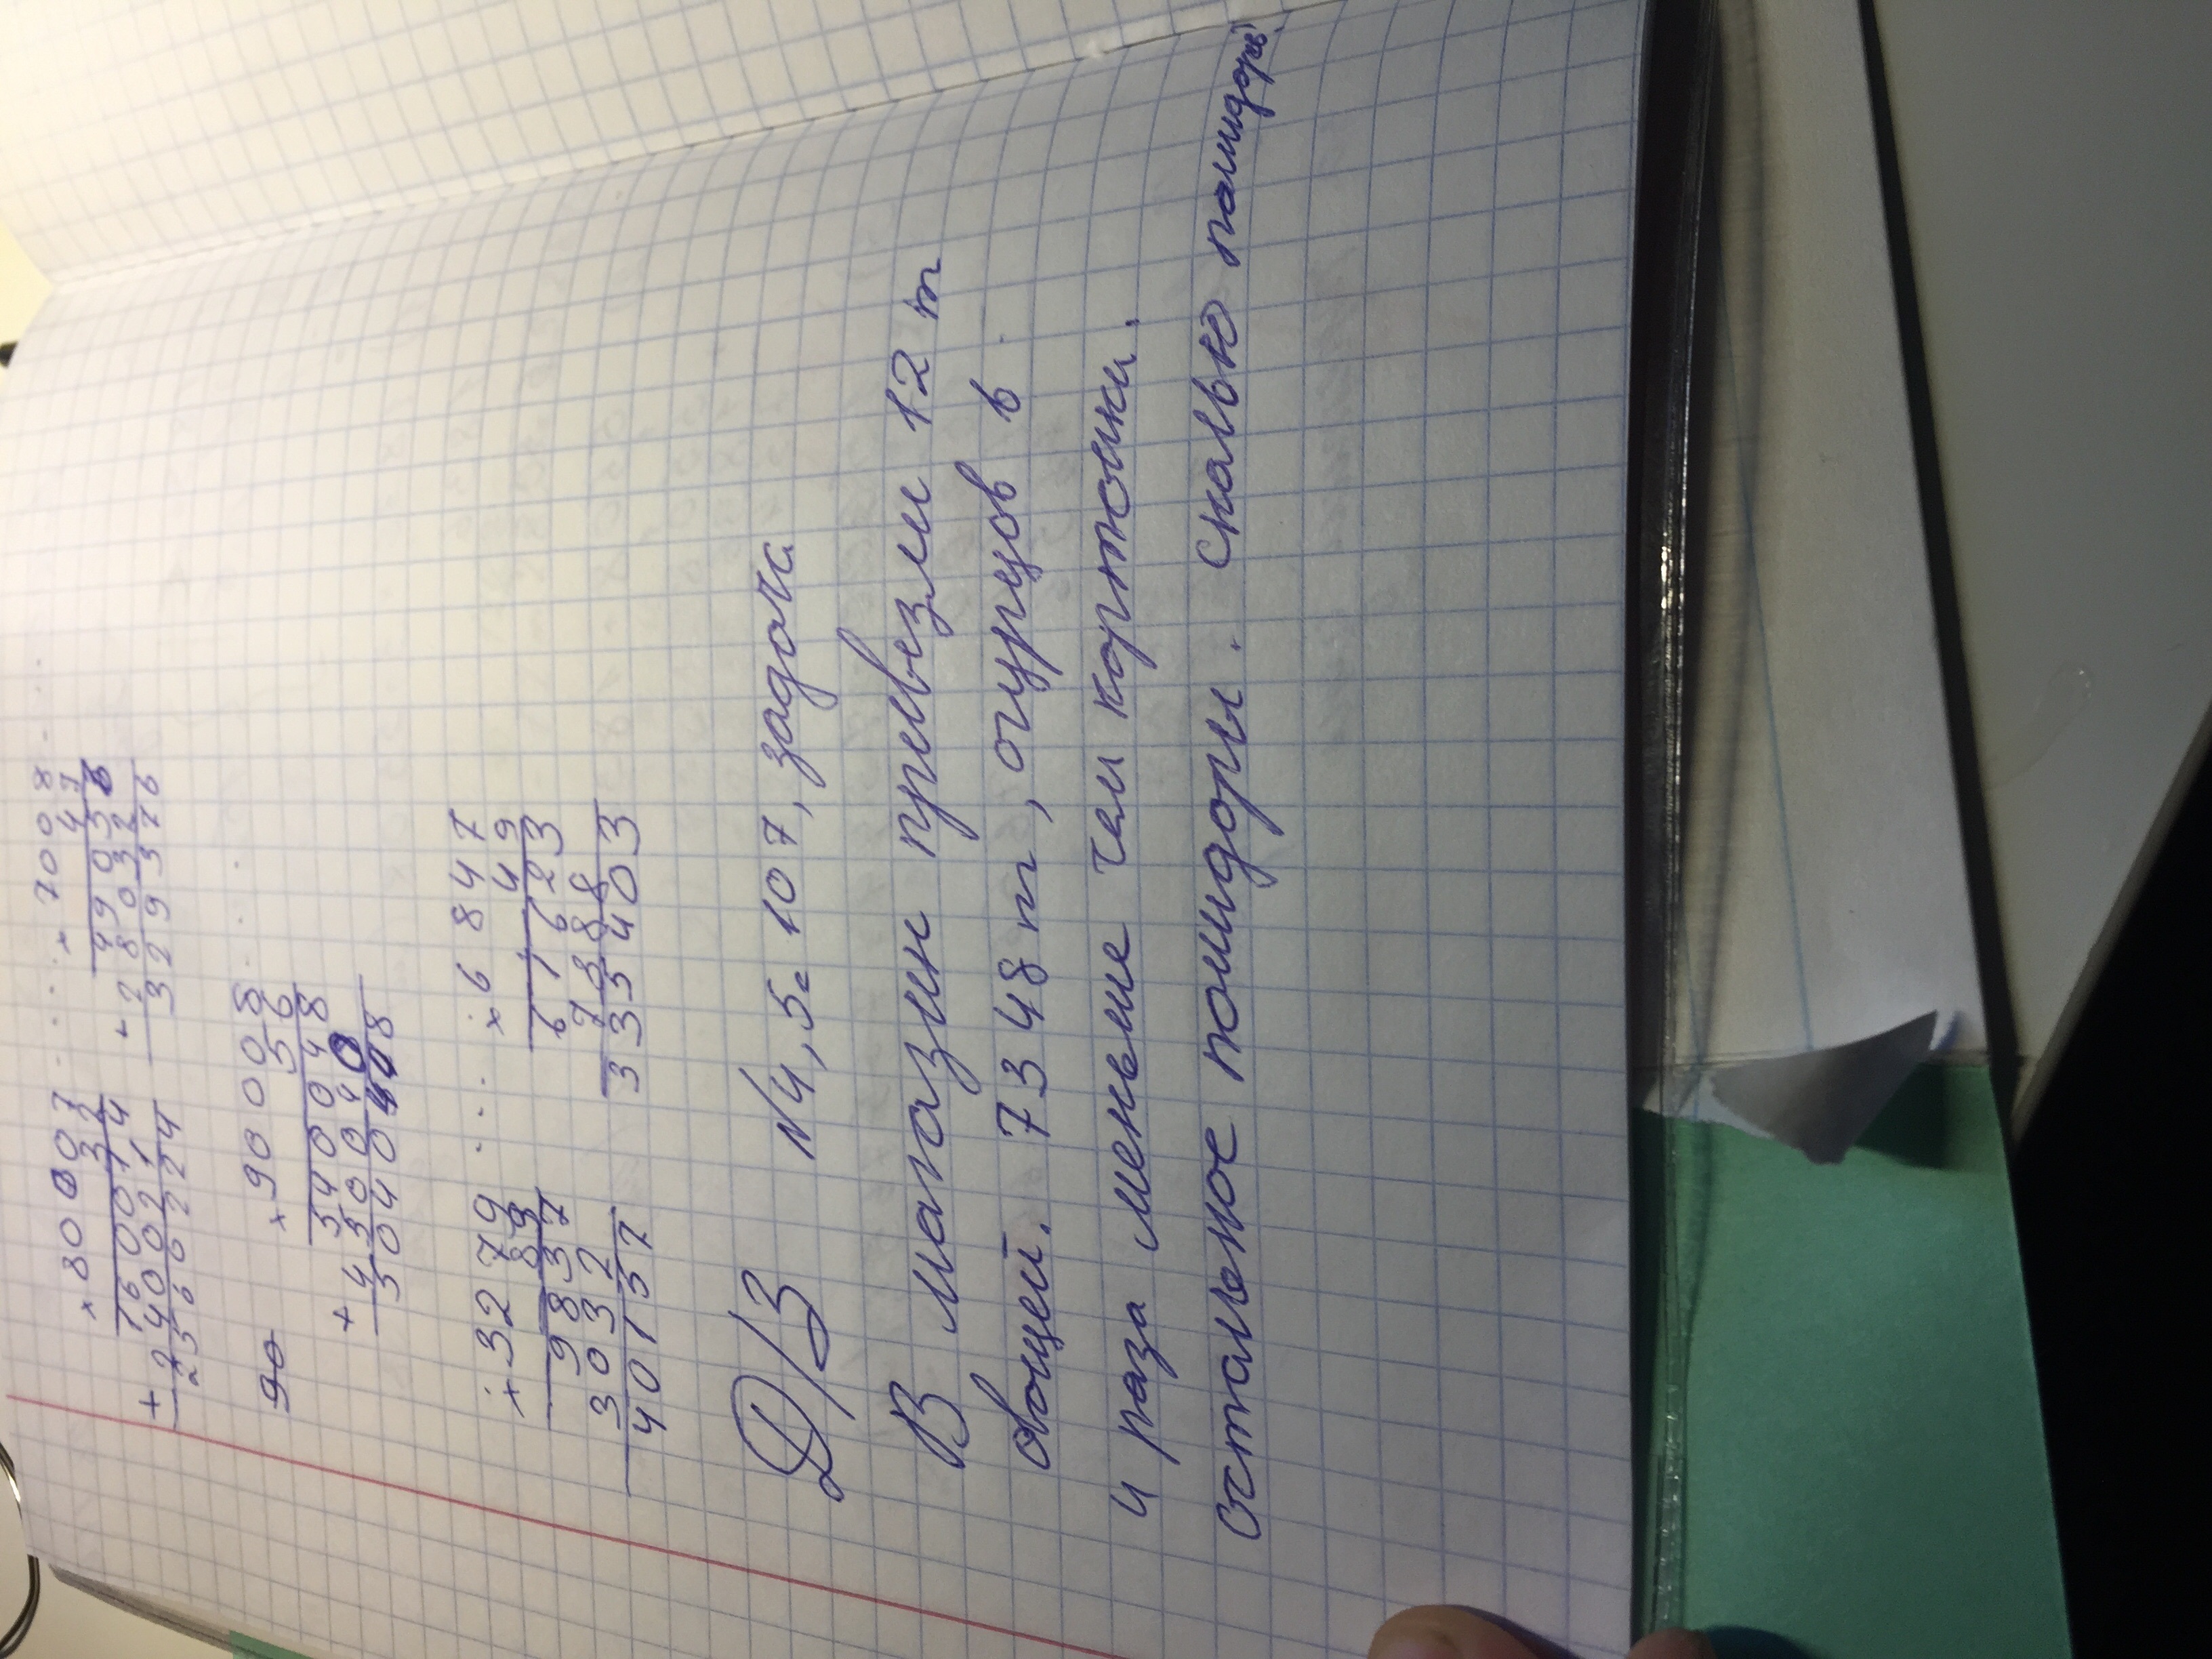 × 80007
32
160014
+ 240021
2560224
× 7008
47
49056
+ 28032
329376
90
× 90008
56
540048
+ 450040
5040448
× 3279
89
9837
3032
40157
× 6847
49
61623
7388
335403
Д/З №4, 5 с 107, задача
В магазин привезли 12 т
овощей. 7348 т, огурцов в
4 раза меньше чем картошки.
остальное помидоры. сколько помидоров